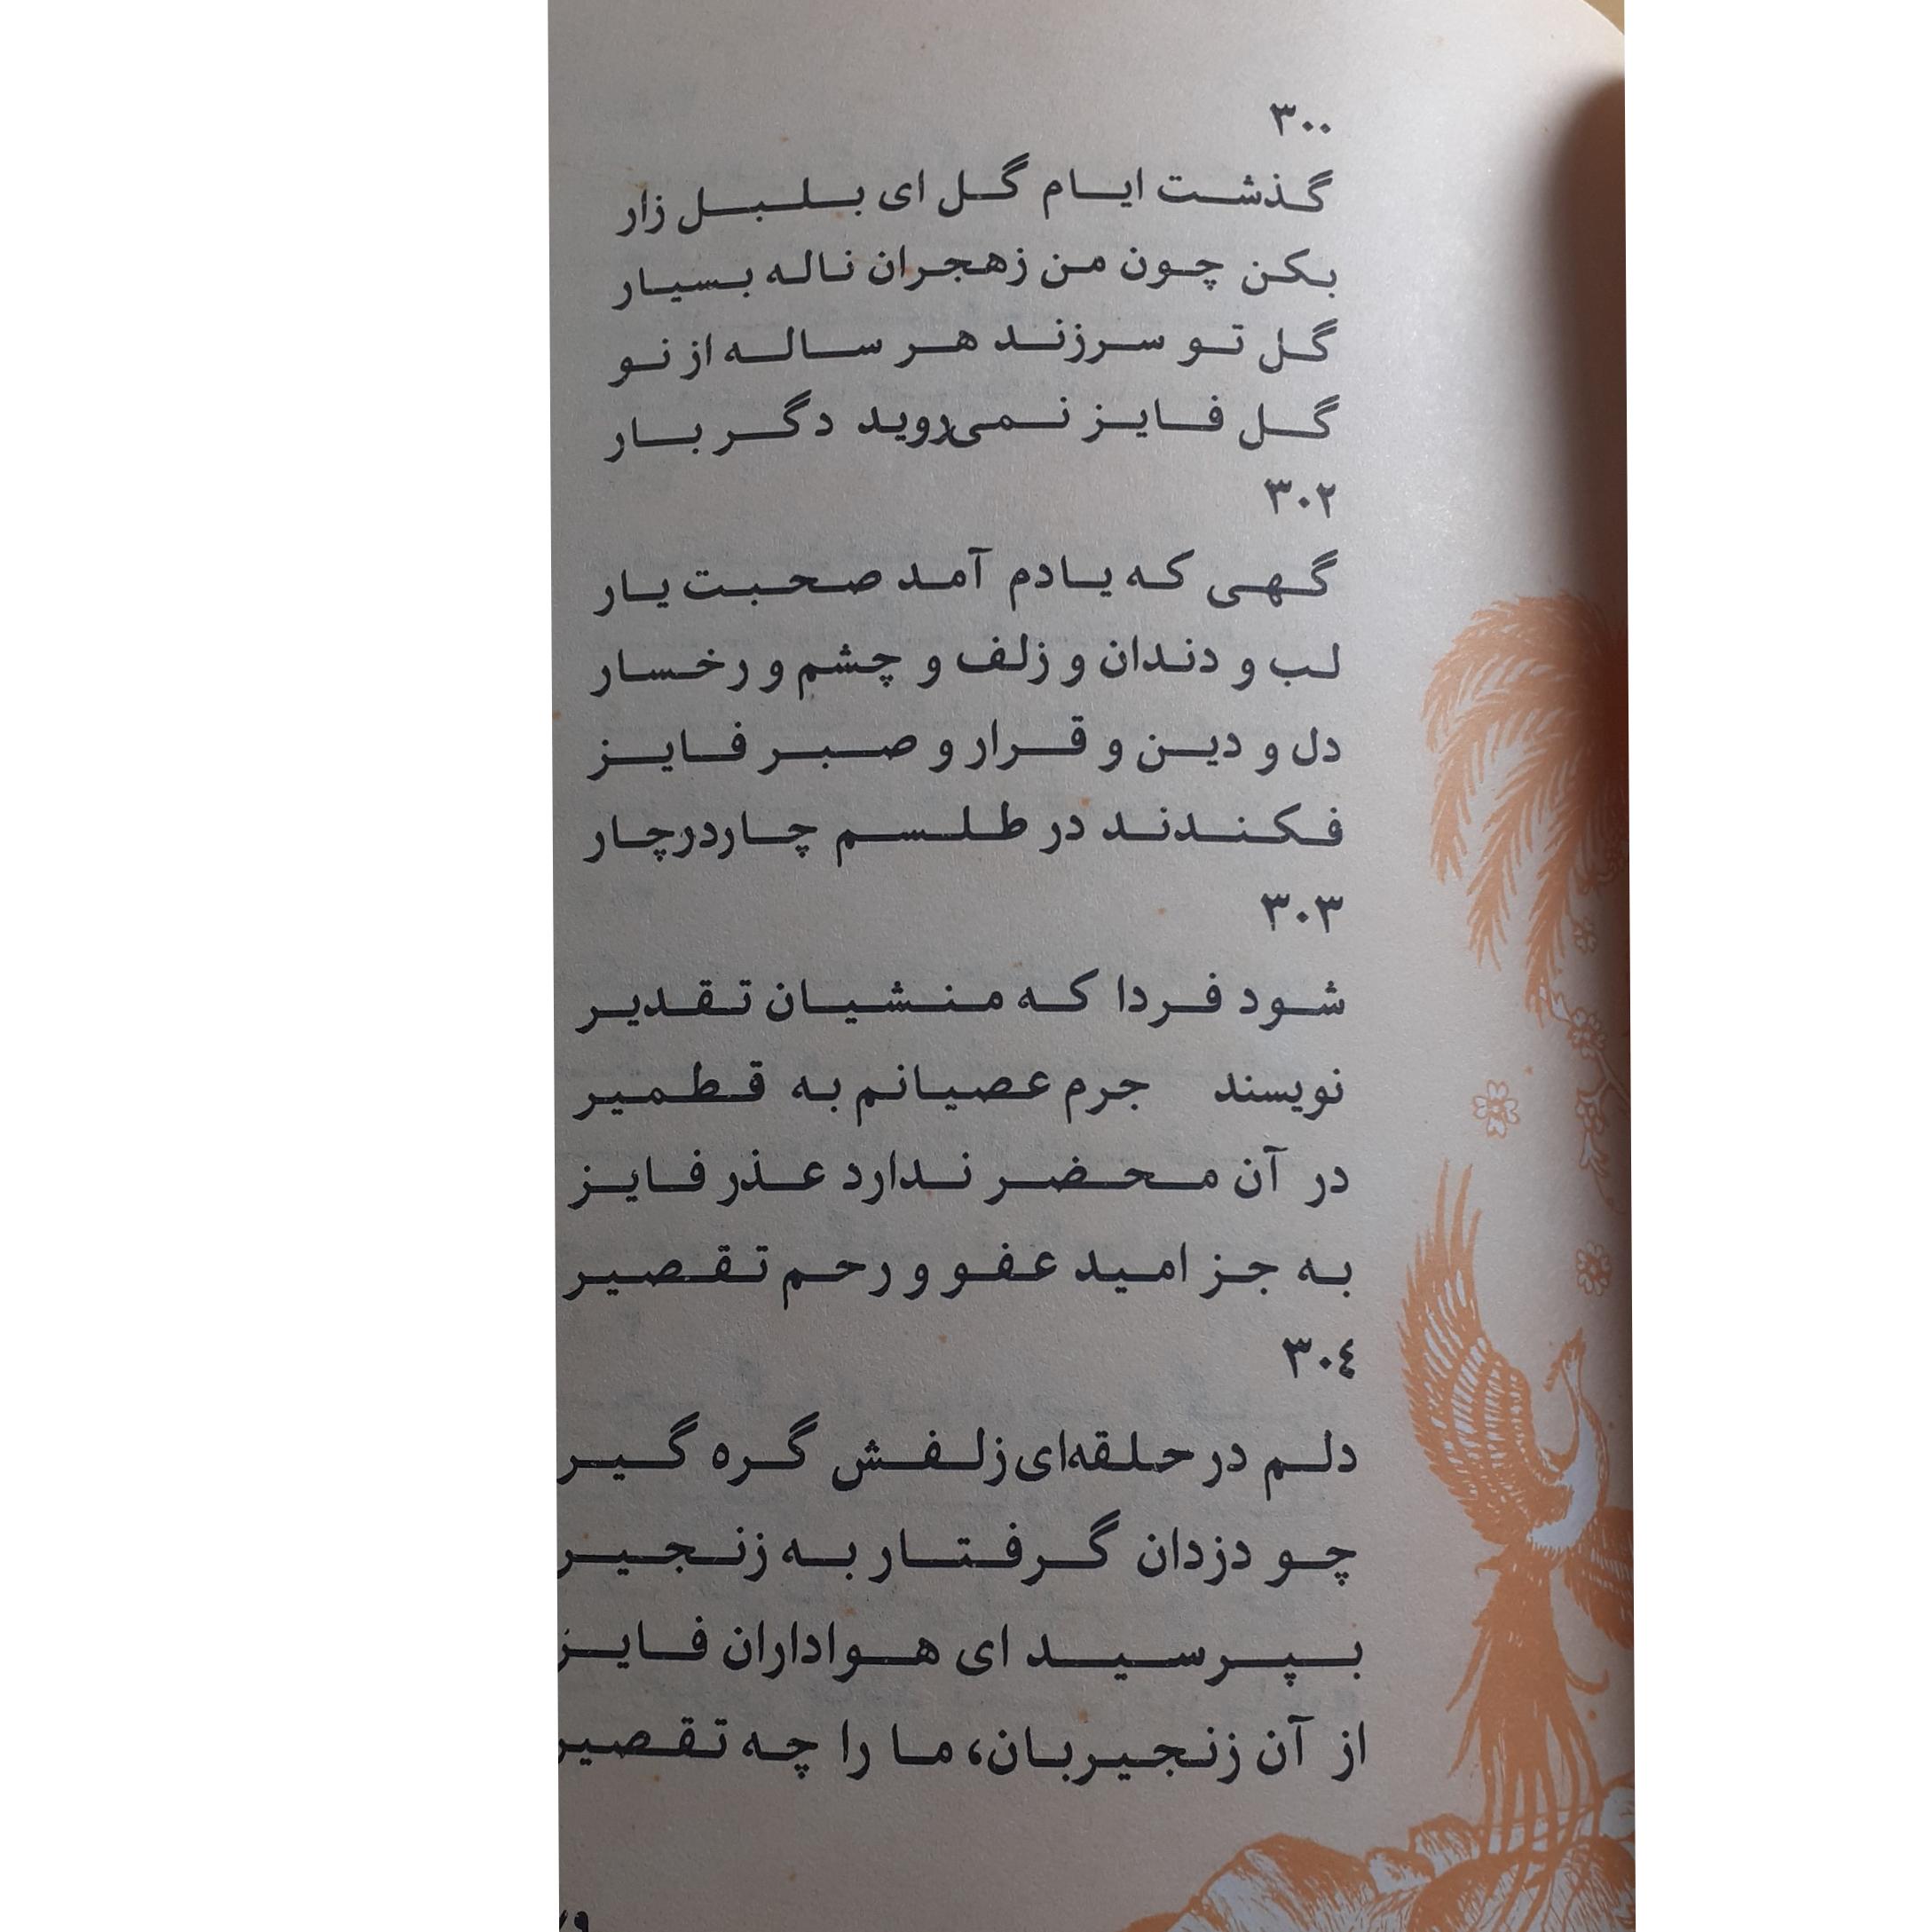 ۳۰۰
گذشت ایام گل ای بلبل زار
بکن چون من زهجران ناله بسیار
گل تو سرزند هر ساله از نو
گل فایز نمی‌روید دگر بار
۳۰۲
گهی که یادم آمد صحبت یار
لب و دندان و زلف و چشم و رخسار
دل و دین و قرار و صبر فایز
فکندند در طلسم چاردرچار
۳۰۳
شود فردا که منشیان تقدیر
نویسند جرم عصیانم به قطمیر
در آن محضر ندارد عذر فایز
به جز امید عفو و رحم تقصیر
۳۰٤
دلم در حلقه‌ای زلفش گره گیر
چو دزدان گرفتار به زنجیر
بپرسید ای هواداران فایز
از آن زنجیربان، ما را چه تقصیر